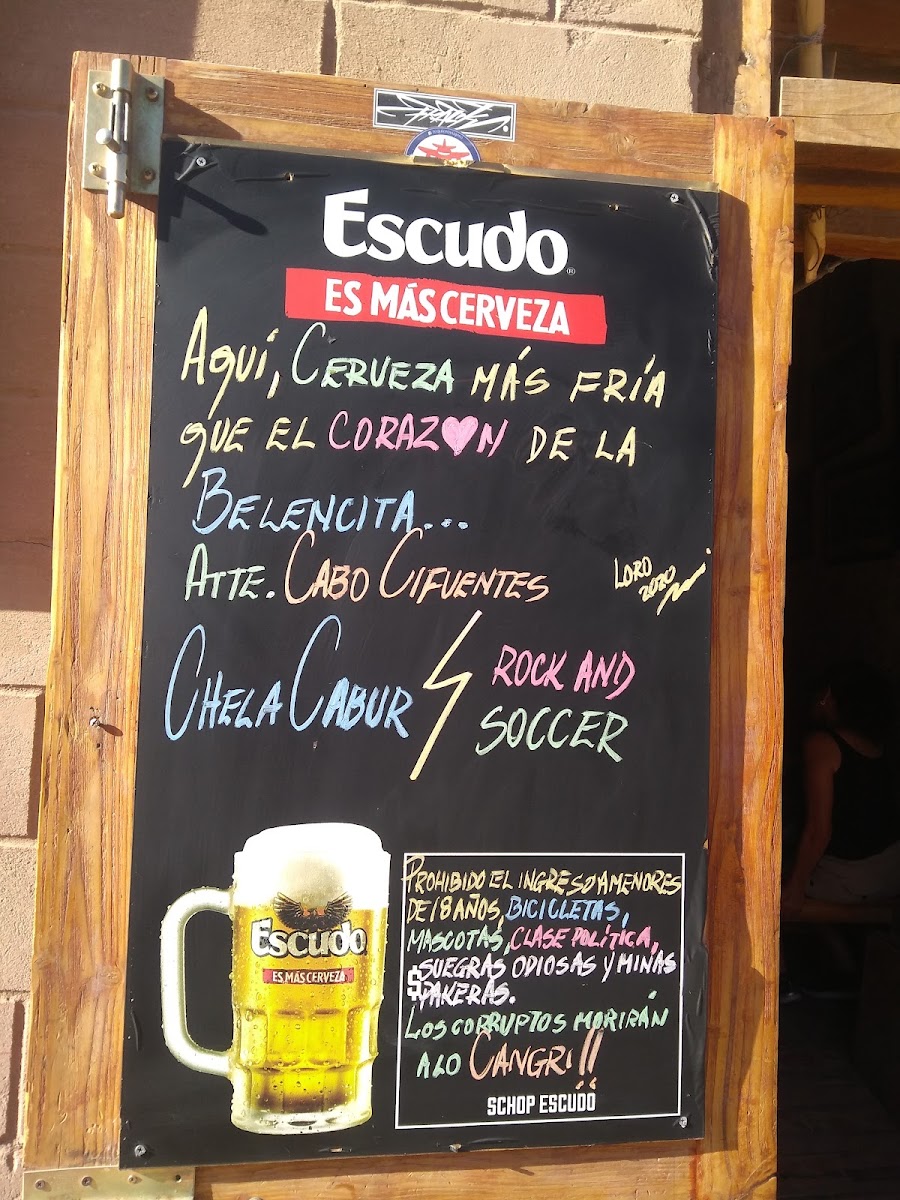 Escudo®
ES MÁS CERVEZA
AQUÍ, CERVEZA MÁS FRÍA
QUE EL CORAZ♥N DE LA
BELENCITA...
ATTE. CABO CIFUENTES
LORO
2020
CHELA CABUR ROCK AND
SOCCER
Escudo
ES MÁS CERVEZA
PROHIBIDO EL INGRESO A MENORES
DE 18 AÑOS, BICICLETAS,
MASCOTAS, CLASE POLÍTICA,
SUEGRAS ODIOSAS Y MINAS
PAKERAS.
LOS CORRUPTOS MORIRÁN
A LO CANGRI!!
$
SCHOP ESCUDO